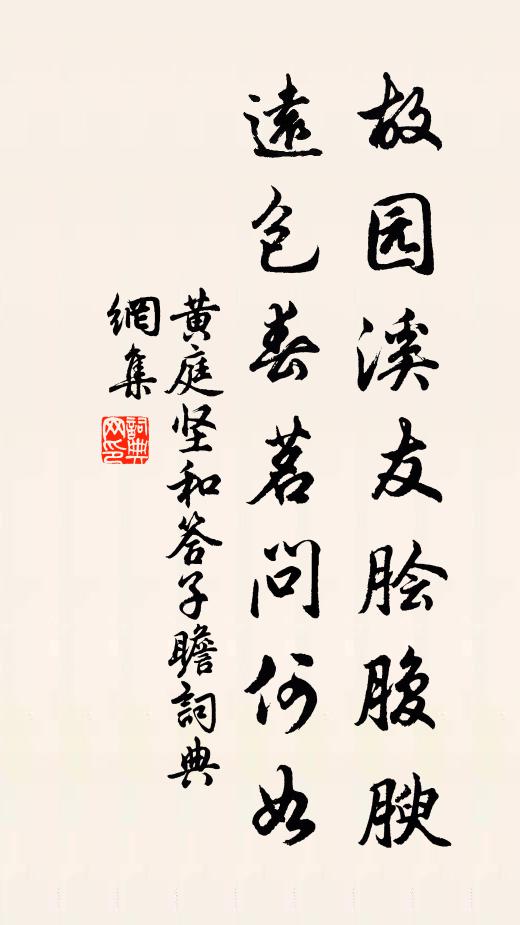 故园溪友脍腹腴
遠包春茗問何如
黄庭坚和答子瞻詞典
網集
詞典
网印